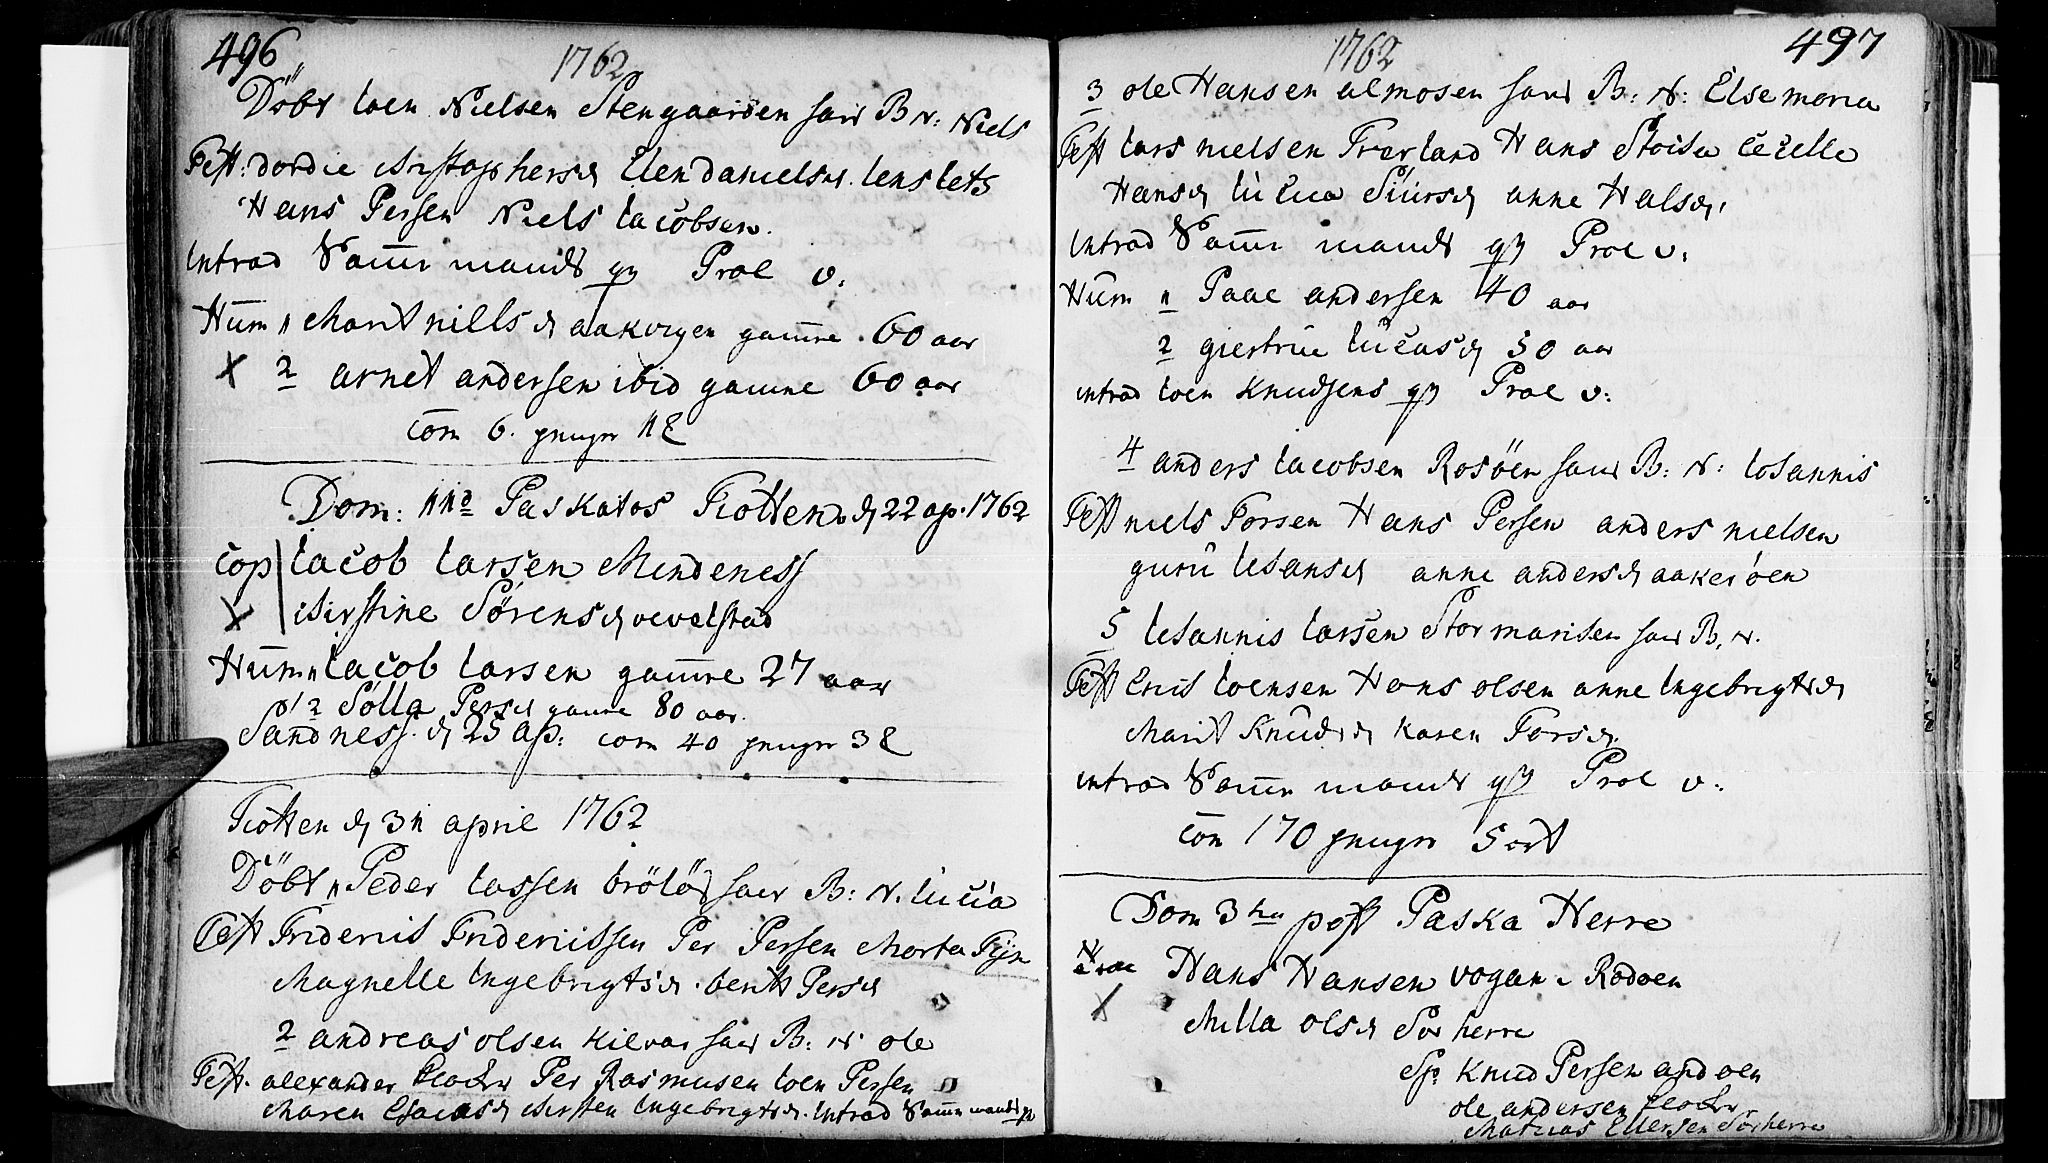 496
1762
Döbt Joen Nielsen Stengaarden hans B N: Niels
Test: dordie christophersd Elen danielsd. Jens Jets
Hans Persen Niels Jacobsen.
Introd Samme mands qv Prol v.
Hum 1 Marit nills d aakvigen gamme. 60 aar
X 2 arnet andersen ibid gamme 60 aar
Com 6. 1 8
Dom: 2da Paskatos Tiotten d 22 ap. 1762
Cop Jacob Larsen Mindeness
X Kirstine Sörensd vevelstad
Hum 1 Jacob Larsen gamme 27 aar
2 Sölla Persd gamme 80 aar.
Sandness. d 25 ap: com 40 3 8
Tiotten d 31 april 1762
Döbt 1 Peder Lassen brölös hans B: N. Lucia
Test Friderich Friderichsen Per Persen Morten Tijn
Magnelle Ingebrigtsd. berit Persd
2 andreas olsen Kilvar hans B: N ole
Test. alexander Per Rasmusen Joen Persen
Maren Esaiasd Kirsten Ingebrigtsd. Introd Samme mands qv
1762
497
3 ole Hansen almosen hans B: N: Else maria
Test Lars nielsen Trærland Hans Stoise Cecelle
Hansd Lucia Siursd anne Halsd,
Introd Samme mands qv Prol v.
Hum 1 Paal andersen 40 aar
2 giertrue Lucasd 50 aar
introd Joen Knudsens qv Prol v:
4 anders Jacobsen Rosöen hans B: N: Johannis
Test niels Torsen Hans Persen anders nielsen
guru Johansd anne andersd aakeröen
5 Johannis Larsen Stormarisen hans B, N.
Test Erich Joensen Hans olsen anne Ingebrigtsd
Marit Knudsd Karen Torsd.
introd Samme mands qv Prol v.
Com 170 5 ort
Dom 3tia post Paska Herre
Hans Hansen vogan i Rodoen
X Milla olsd Sör herre
Sp. Knud Persen andoen
ole andersen
Mathias Ellersen Sörherre